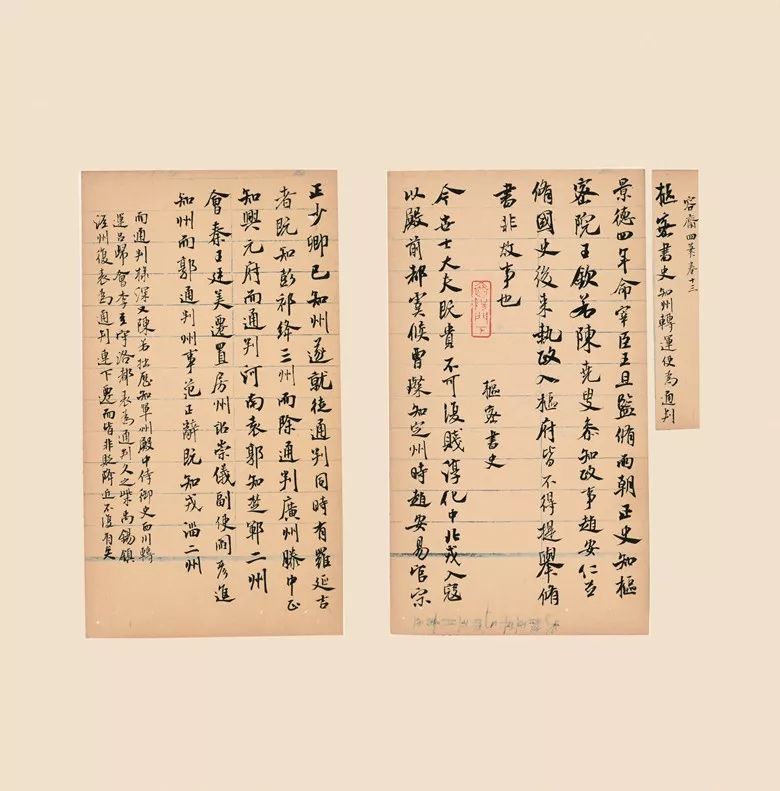 容齋四筆卷十三
樞密書史 知州轉運使為通判
景德四年命宰臣王旦監脩兩朝正史知樞
密院王欽若陳堯叟參知政事趙安仁並
脩國史後來執政入樞府皆不得提舉脩
書非故事也
樞密書史
今世士大夫既貴不可復賤淳化中北戎入寇
以殿前都虞候曹璨知定州時趙安易官宗
正少卿已知州遂就徙通判同時有羅延吉
者既知彭祁絳三州而除通判廣州滕中正
知興元府而通判河南袁郭知楚鄆二州
會秦王廷美遷置房州詔崇儀副使閻彥進
知州而郭通判州事范正辭既知戎淄二州
而通判棣深又陳若拙歷知單州殿中侍御史西川轉
運召歸會李至守洛都表為通判久之柴禹錫鎮
涇州復表為通判連下遷而皆非貶降近不復有矣